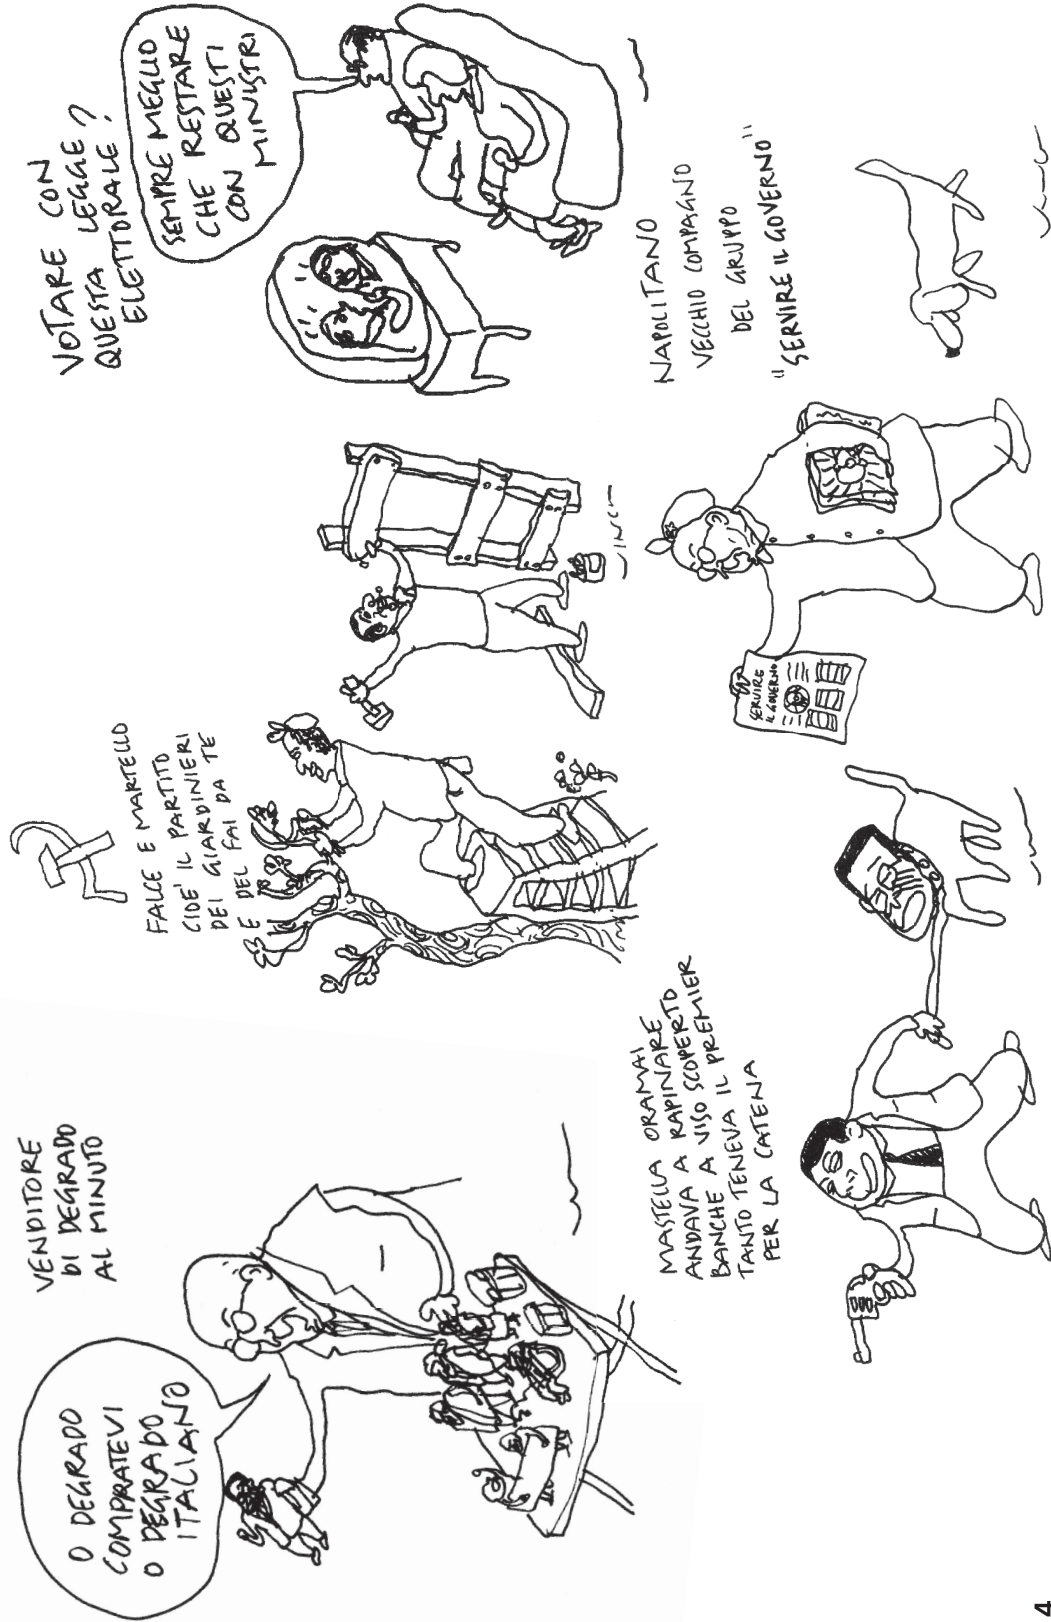 VENDITORE
DI DEGRADO
AL MINUTO
O DEGRADO
COMPRATEVI
O DEGRADO
ITALIANO
FALCE E MARTELLO
CIOE' IL PARTITO
DEI GIARDINIERI
E DEL FAI DA TE
VINCI
VOTARE CON
QUESTA LEGGE
ELETTORALE?
SEMPRE MEGLIO
CHE RESTARE
CON QUESTI
MINISTRI
MASTELLA ORAMAI
ANDAVA A RAPINARE
BANCHE A VISO SCOPERTO
TANTO TENEVA IL PREMIER
PER LA CATENA
NAPOLITANO
VECCHIO COMPAGNO
DEL GRUPPO
"SERVIRE IL GOVERNO"
SERVIRE
IL GOVERNO
4